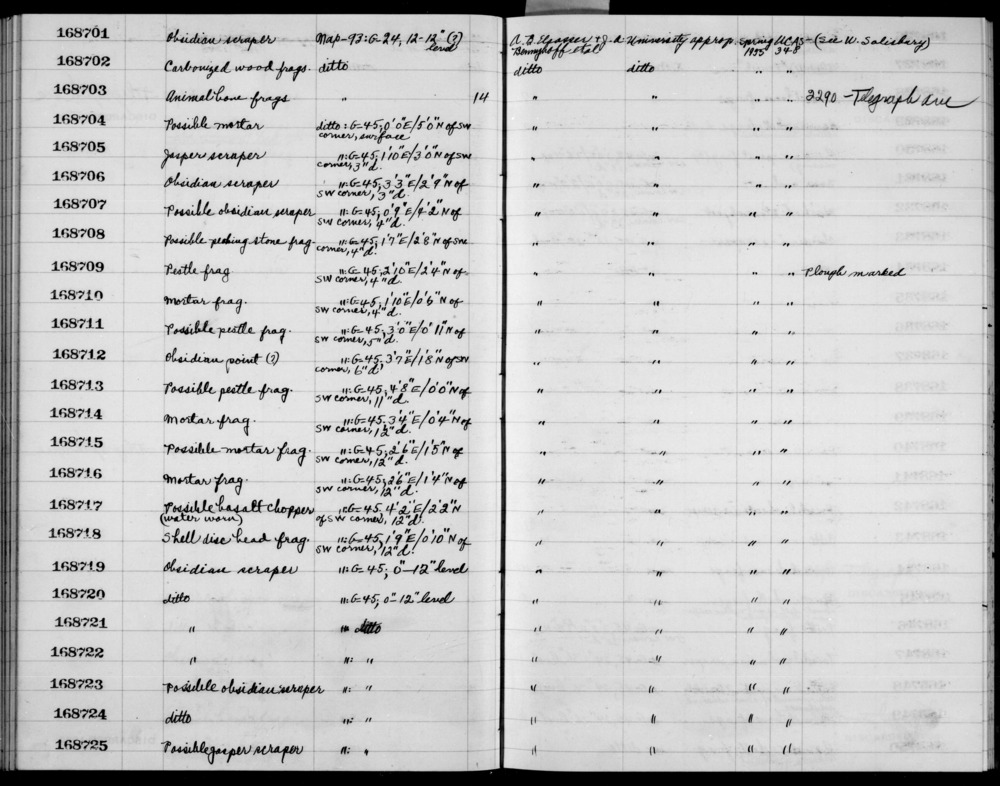 168701 Obsidian scraper Map-93: G-24, 12-12" (?) level A. B. Elsasser + J. A. Bennyhoff et al University approp. Spring 1955 UCAS 34-8 (See W. Salisbury)
168702 Carbonized wood frags. ditto ditto ditto " "
168703 Animal bone frags " 14 " " " " 2290 - Telegraph ave
168704 Possible mortar ditto: G-45, 0'0"E/5'0"N of SW corner, surface " " " "
168705 Jasper scraper ": G-45, 1'0"E/3'0"N of SW corner, 3"d. " " " "
168706 Obsidian scraper ": G-45, 3'3"E/2'9"N of SW corner, 3"d. " " " "
168707 Possible obsidian scraper ": G-45, 0'9"E/4'2"N of SW corner, 4"d. " " " "
168708 Possible pecking stone frag. ": G-45, 1'7"E/2'8"N of SW corner, 4"d. " " " "
168709 Pestle frag ": G-45, 2'10"E/2'4"N of SW corner, 4"d. " " " " Plough marked
168710 Mortar frag. ": G-45, 1'10"E/0'6"N of SW corner, 4"d. " " " "
168711 Possible pestle frag. ": G-45, 3'0"E/0'11"N of SW corner, 5"d. " " " "
168712 Obsidian point (?) ": G-45, 3'7"E/1'8"N of SW corner, 6"d. " " " "
168713 Possible pestle frag. ": G-45, 4'8"E/0'0"N of SW corner, 11"d. " " " "
168714 Mortar frag. ": G-45, 3'4"E/0'4"N of SW corner, 12"d. " " " "
168715 Possible mortar frag. ": G-45, 2'6"E/1'5"N of SW corner, 12"d. " " " "
168716 Mortar frag. ": G-45, 2'6"E/1'4"N of SW corner, 12"d. " " " "
168717 Possible basalt chopper (water worn) ": G-45, 4'2"E/2'2"N of SW corner, 12"d. " " " "
168718 Shell disc bead frag. ": G-45, 1'9"E/0'10"N of SW corner, 12"d. " " " "
168719 Obsidian scraper ": G-45, 0"-12" level " " " "
168720 ditto ": G-45, 0"-12" level " " " "
168721 " ": ditto " " " "
168722 " ": " " " " "
168723 Possible obsidian scraper ": " " " " "
168724 ditto ": " " " " "
168725 Possible jasper scraper ": " " " " "